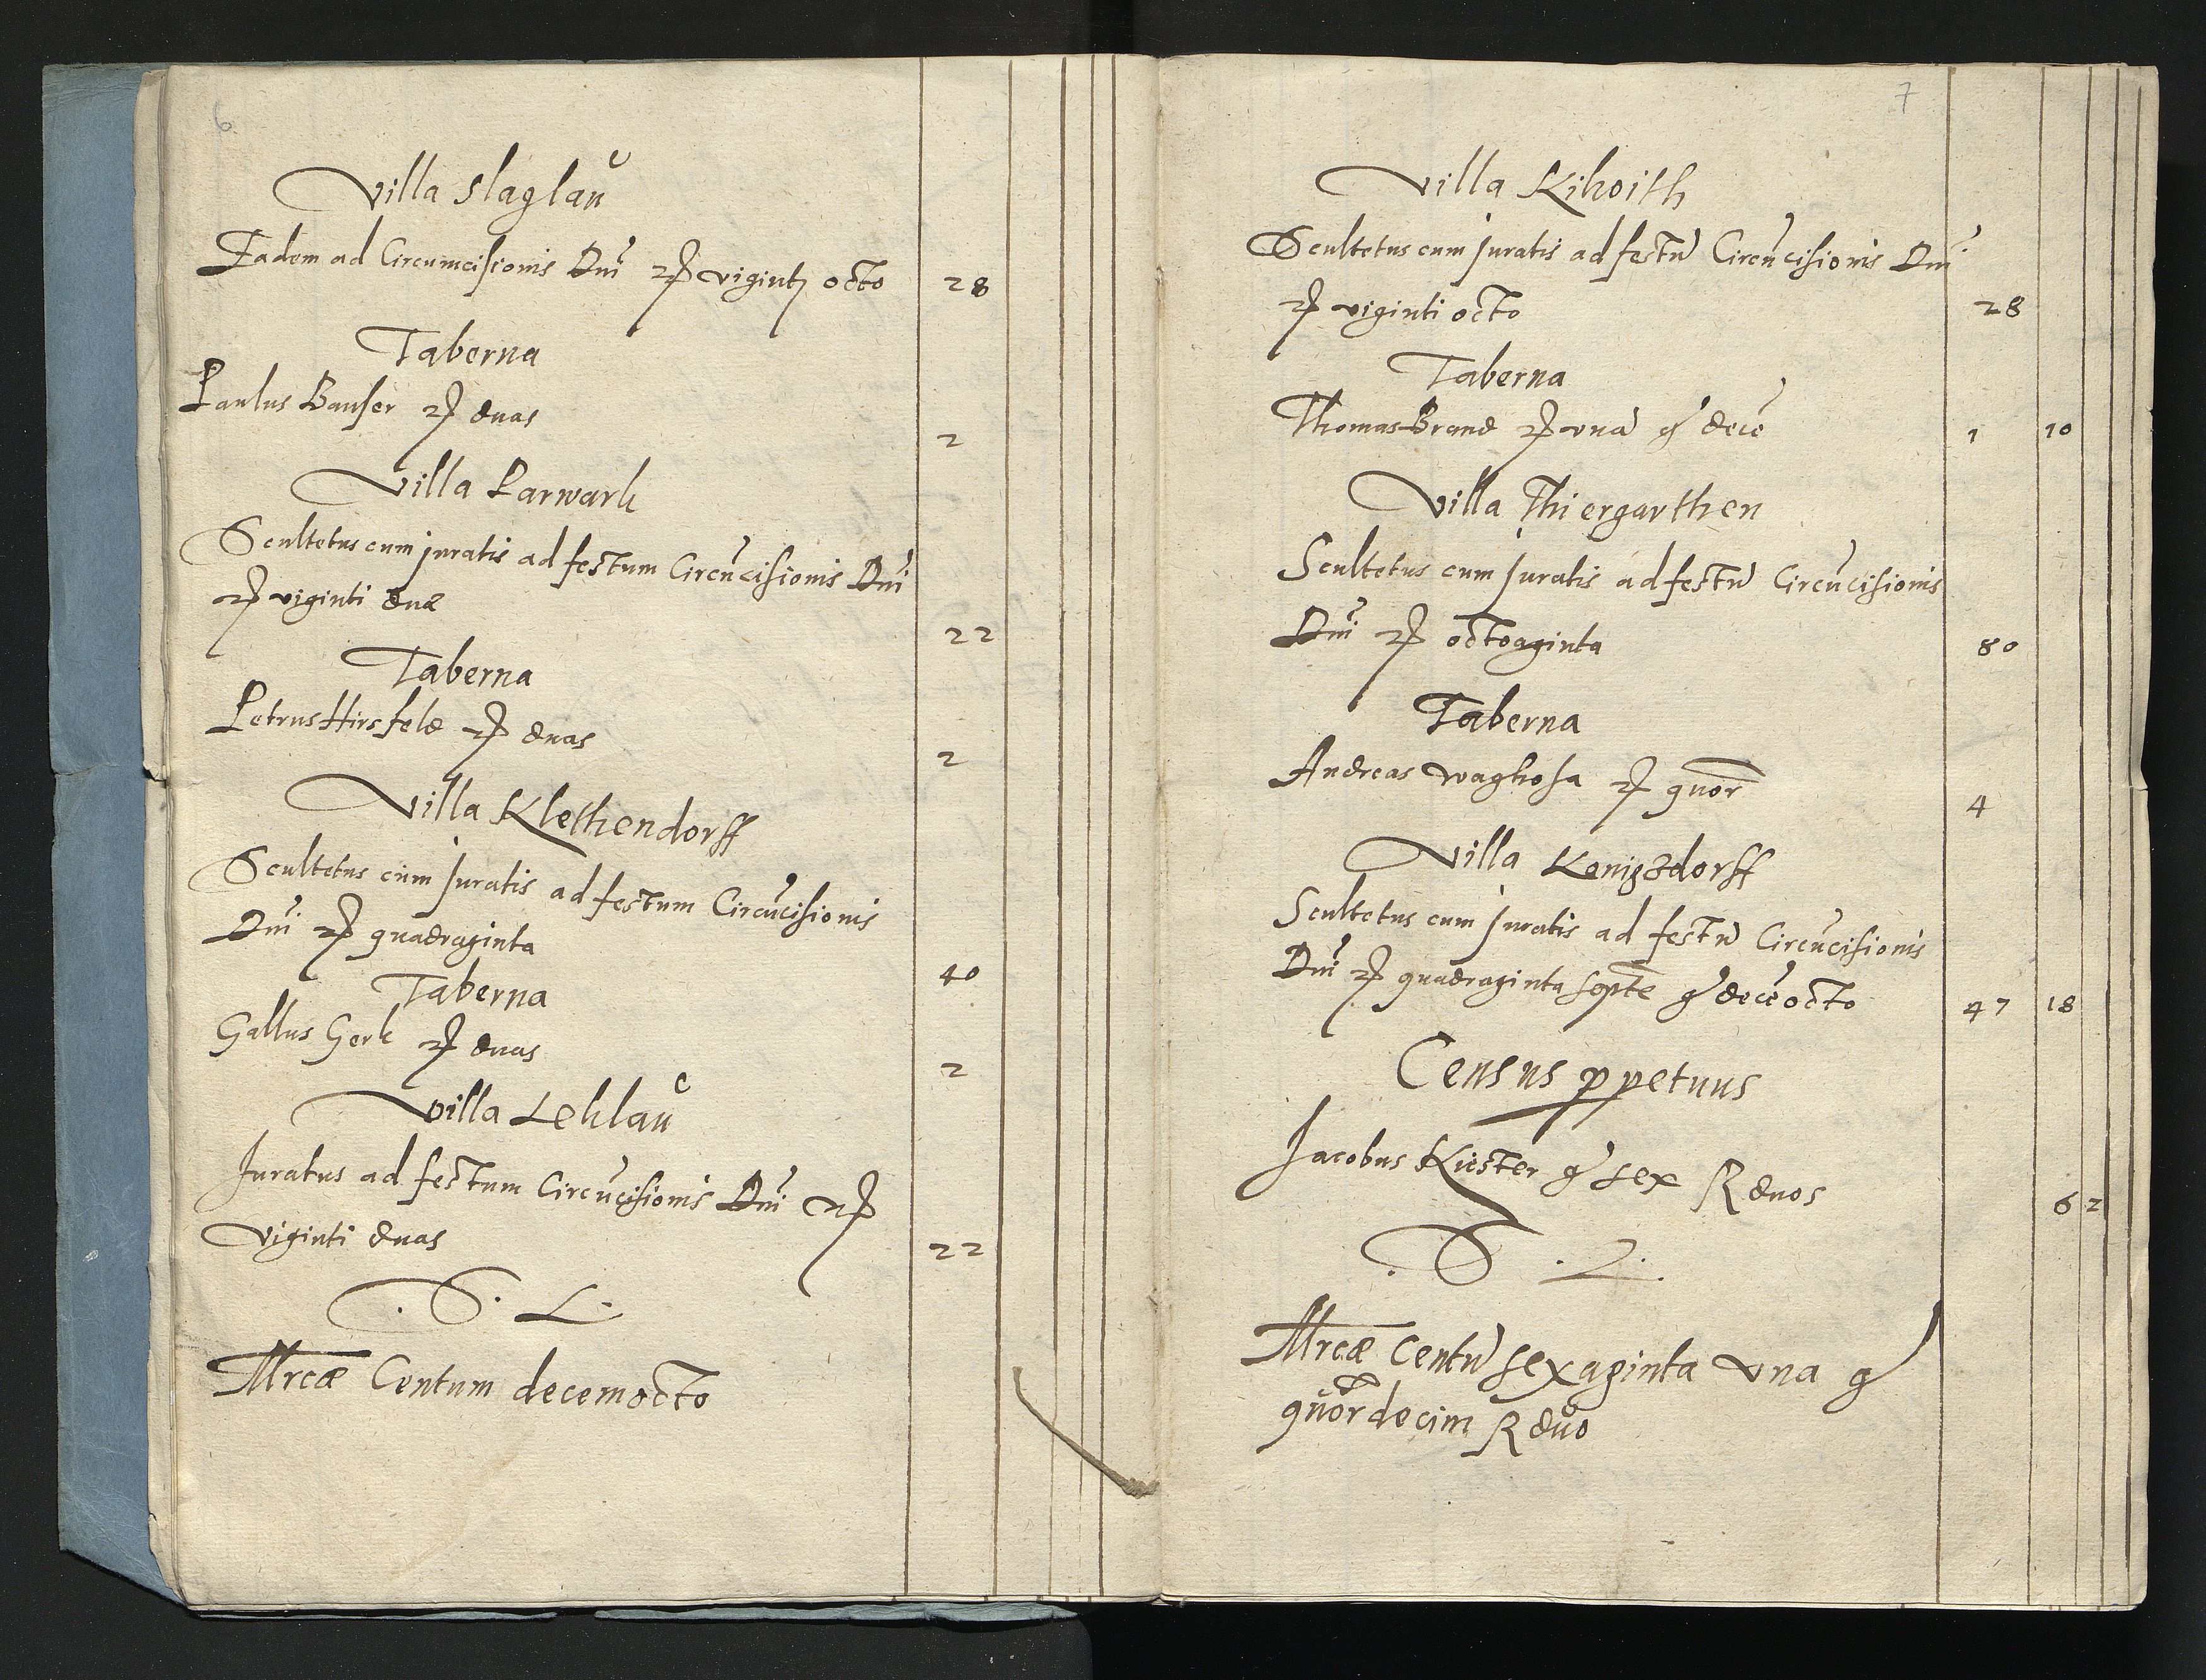 6
Villa Slaglaŭ
Eadem ad Circumcisionis Dni ⅌ viginti octo 28
Taberna
Paulus Banser ⅌ duas 2
Villa Parwark
Scultetus cum juratis ad festum Circūcisionis Dni
⅌ viginti duæ 22
Taberna
Petrus Hirsfeld ⅌ duas 2
Villa Klethendorff
Scultetus cum Juratis ad festum Circūcisionis
Dni ⅌ quadraginta 40
Taberna
Gallus Gerk ⅌ duas 2
Villa Leklaŭ
Juratus ad festum Circūcisionis Dni ⅌
viginti duas 22
S. L.
Mrcæ Centum decemocto
7
Villa Kikoith
Scultetus cum Juratis ad festū Circūcisionis Dni
⅌ viginti octo 28
Taberna
Thomas Brand ⅌ unā g decē 1 10
Villa Thiergarthen
Scultetus cum Juratis ad festū Circūcisionis
Dni ⅌ octoaginta 80
Taberna
Andreas ⅌ quor 4
Villa Konigsdorff
Scultetus cum Juratis ad festū Circūcisionis
Dni ⅌ quadraginta septē g decē octo 47 18
Census ppetuus
Jacobus Küster g sex R duos 6 2
S. L.
Mrcæ Centū sexaginta una g
quordecim R duo